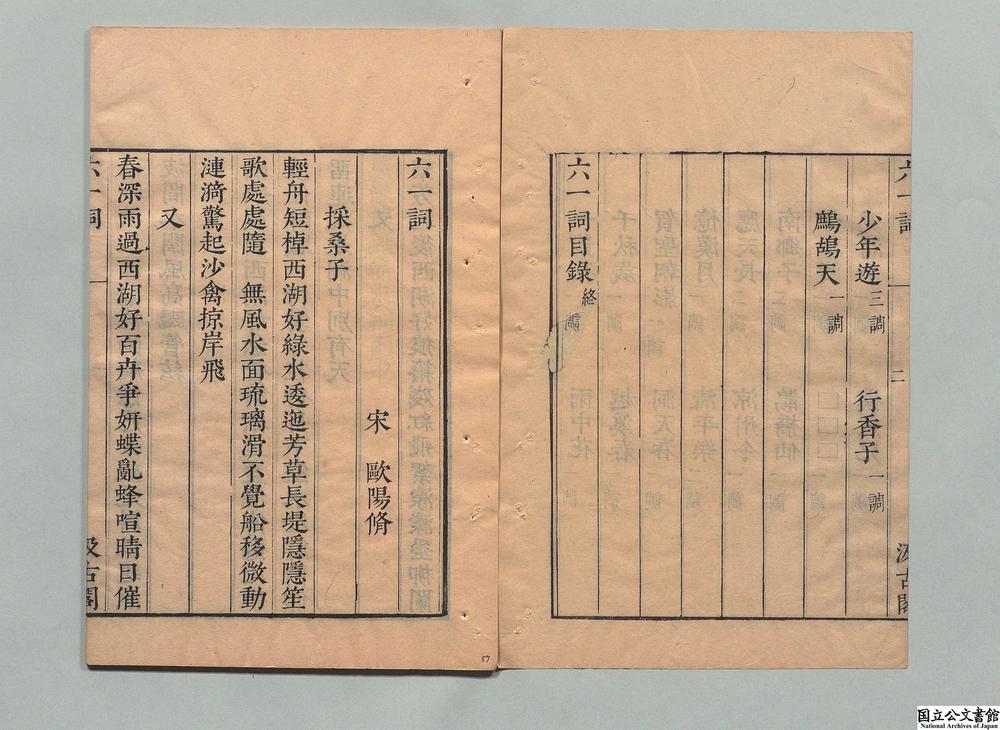 六一詞
少年遊三調 行香子一調
鷓鴣天一調
六一詞目錄終
二
汲古閣
六一詞
宋 歐陽脩
採桑子
輕舟短棹西湖好綠水逶迤芳草長堤隱隱笙
歌處處隨 無風水面琉璃滑不覺船移微動
漣漪驚起沙禽掠岸飛
又
春深雨過西湖好百卉爭妍蝶亂蜂喧晴日催
六一詞
一
汲古閣
57
国立公文書館
National Archives of Japan